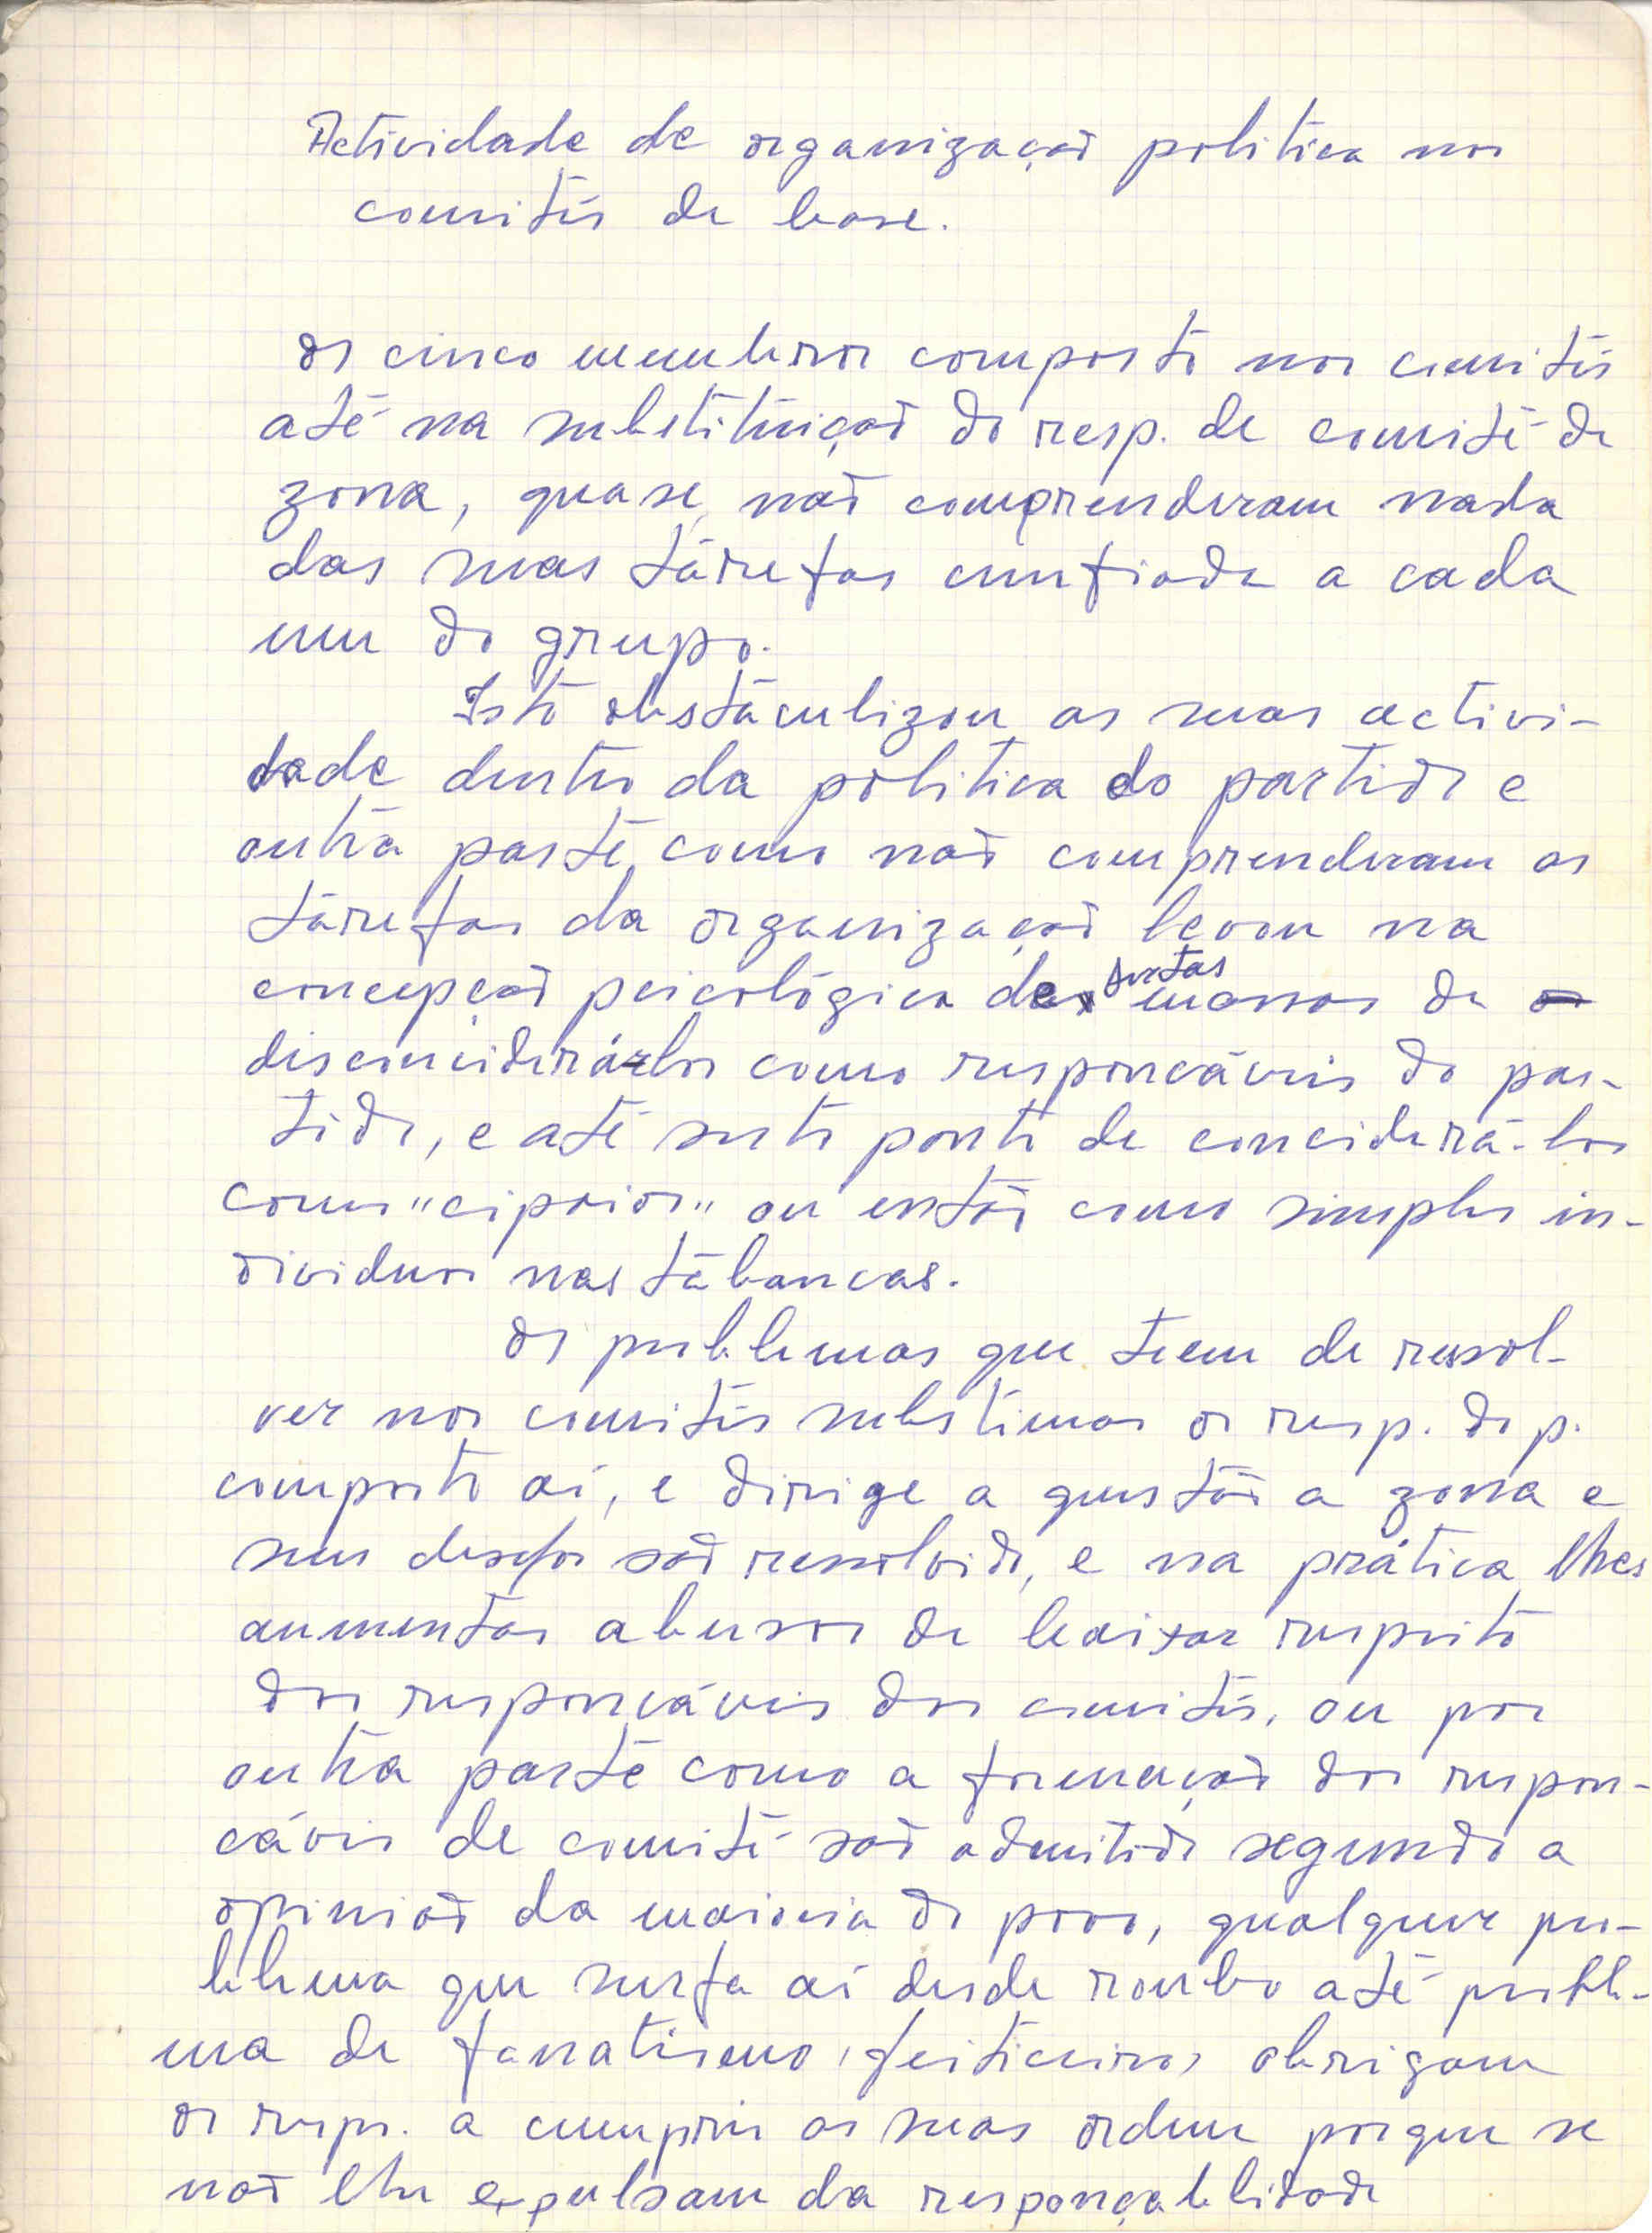 Actividade de organização politica nos
comités de base.
Os cinco membros composto nos comités
até na substituição do resp. de comité de
zona, quase não comprenderam nada
das suas tárefas confiada a cada
um do grupo.
Isto obstáculizou as suas activi-
dade dentro da politica do partido e
outra parte, como não comprenderam as
tárefas da organização levou na
concepção psicológica de certas massas de
disconciderá-los como responcáveis do par-
tido, e até certo ponto de conciderá-los
como "cipaios" ou então como simples in-
dividuos nas tábancas.
Os problemas que teem de resol-
ver nos comités substimas os resp. do p.
composto aí, e dirige a questão a zona e
seus desejos são resolvido, e na prática lhes
aumentas abusos de baixar respeito
dos responcáveis dos comités, ou por
outra parte como a formação dos respon-
cáveis de comité são admitido segundo a
opinião da maioria do povo, qualquer pro-
blema que surja aí desde roubo até proble-
ma de fanatismo, feiticeiros, obrigam
os resps. a cumprir as suas ordem porque se
não lhe expulsam da responçablidade